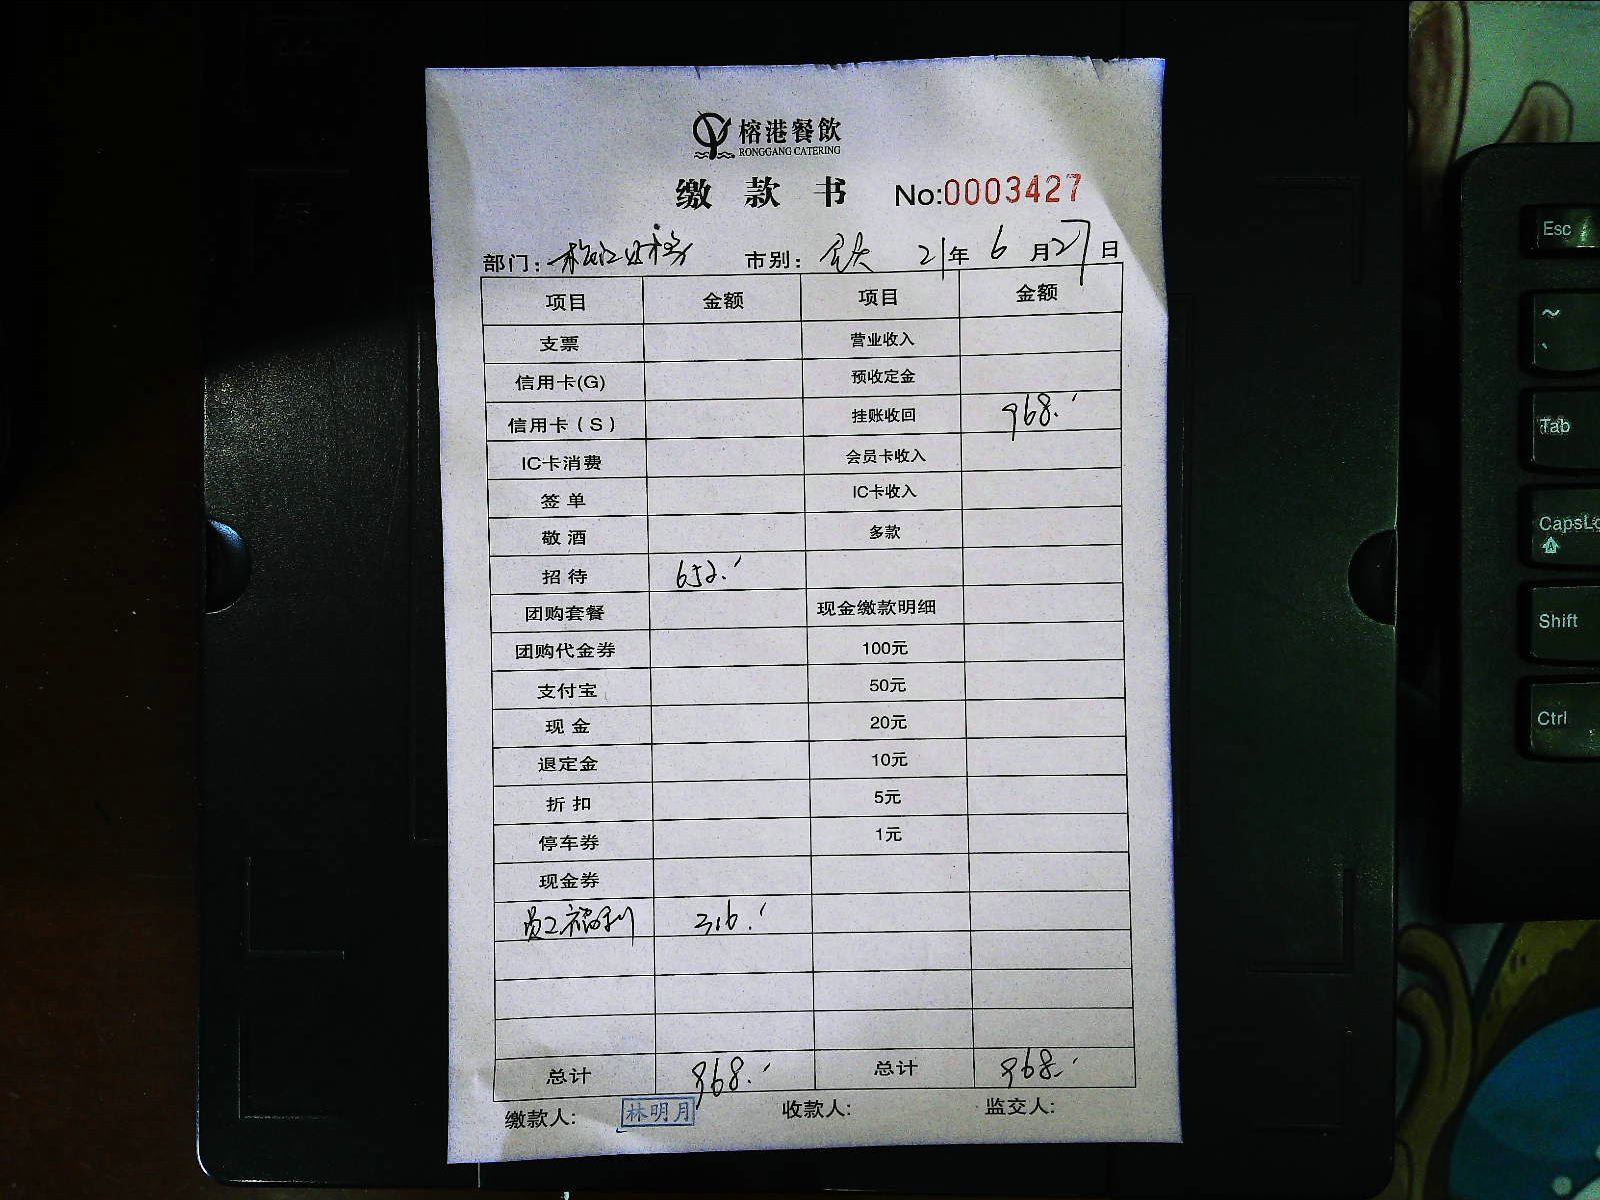 榕港餐飲
RONGGANG CATERING
缴款书 No:0003427
部门: 市别: 21年6月27日
项目 金额 项目 金额
支票 营业收入
信用卡(G) 预收定金
信用卡(S) 挂账收回 968.
IC卡消费 会员卡收入
签单 IC卡收入
敬酒 多款
招待 652.
团购套餐 现金缴款明细
团购代金券 100元
支付宝 50元
现金 20元
退定金 10元
折扣 5元
停车券 1元
现金券
员工福利 316.
总计 968. 总计 968.
缴款人: 林明月 收款人: 监交人:
Esc
~
Tab
CapsLo
Shift
Ctrl